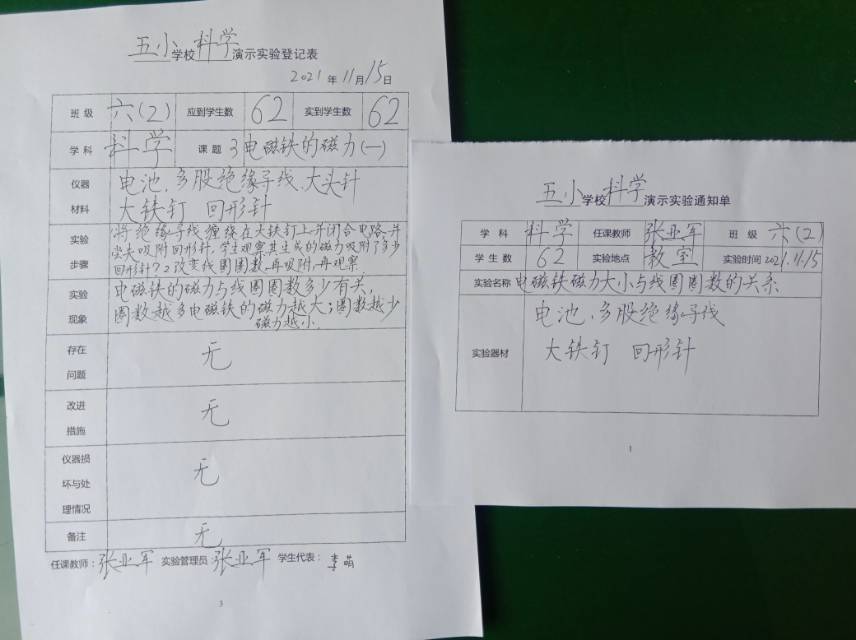 五小学校科学演示实验登记表
2021年11月15日
班级 六(2) 应到学生数 62 实到学生数 62
学科 科学 课题 3电磁铁的磁力(一)
仪器材料
电池、多股绝缘导线、大头针
大铁钉 回形针
实验步骤
将绝缘导线缠绕在大铁钉上,并闭合电路,并
尝试吸附回形针,学生观察其生成的磁力吸附了多少
回形针?2改变线圈圈数,再吸附,再观察
实验现象
电磁铁的磁力与线圈圈数多少有关,
圈数越多电磁铁的磁力越大;圈数越少
磁力越小
存在问题 无
改进措施 无
仪器损坏与处理情况 无
备注 无
任课教师:张业军 实验管理员 张业军 学生代表:李萌
3
五小学校科学演示实验通知单
学科 科学 任课教师 张业军 班级 六(2)
学生数 62 实验地点 教室 实验时间 2021.11.15
实验名称 电磁铁磁力大小与线圈圈数的关系
实验器材
电池、多股绝缘导线
大铁钉 回形针
1